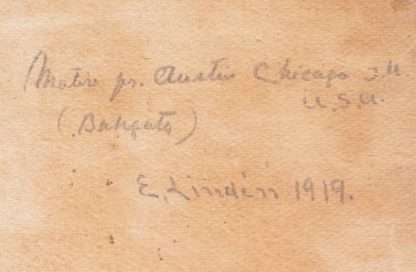 Motiv fr. Austin Chicago Ill
U.S.A.
(Bakgata)
E. Lindén 1919.